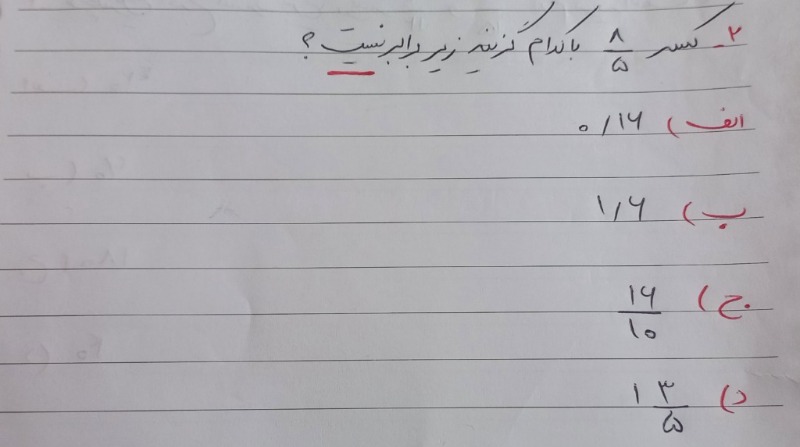 ۲- کسر ۸/۵ با کدام گزینه زیر برابر نیست ؟
الف) ۰/۱۶
ب) ۱/۶
ج) ۱۶/۱۰
د) ۱ ۳/۵